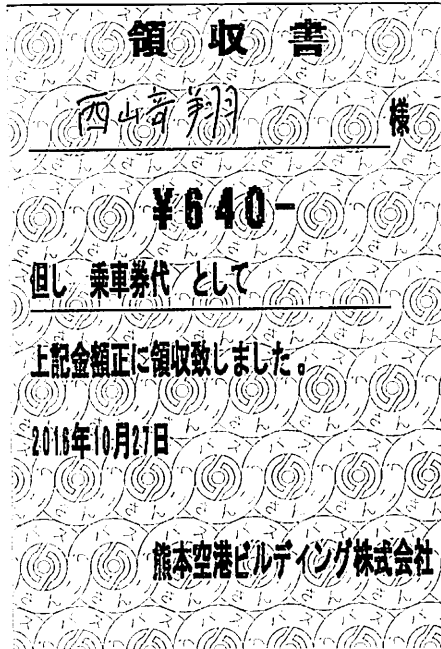 領収書
西山奇翔 様
¥640-
但し 乗車券代 として
上記金額正に領収致しました。
2016年10月27日
熊本空港ビルディング株式会社